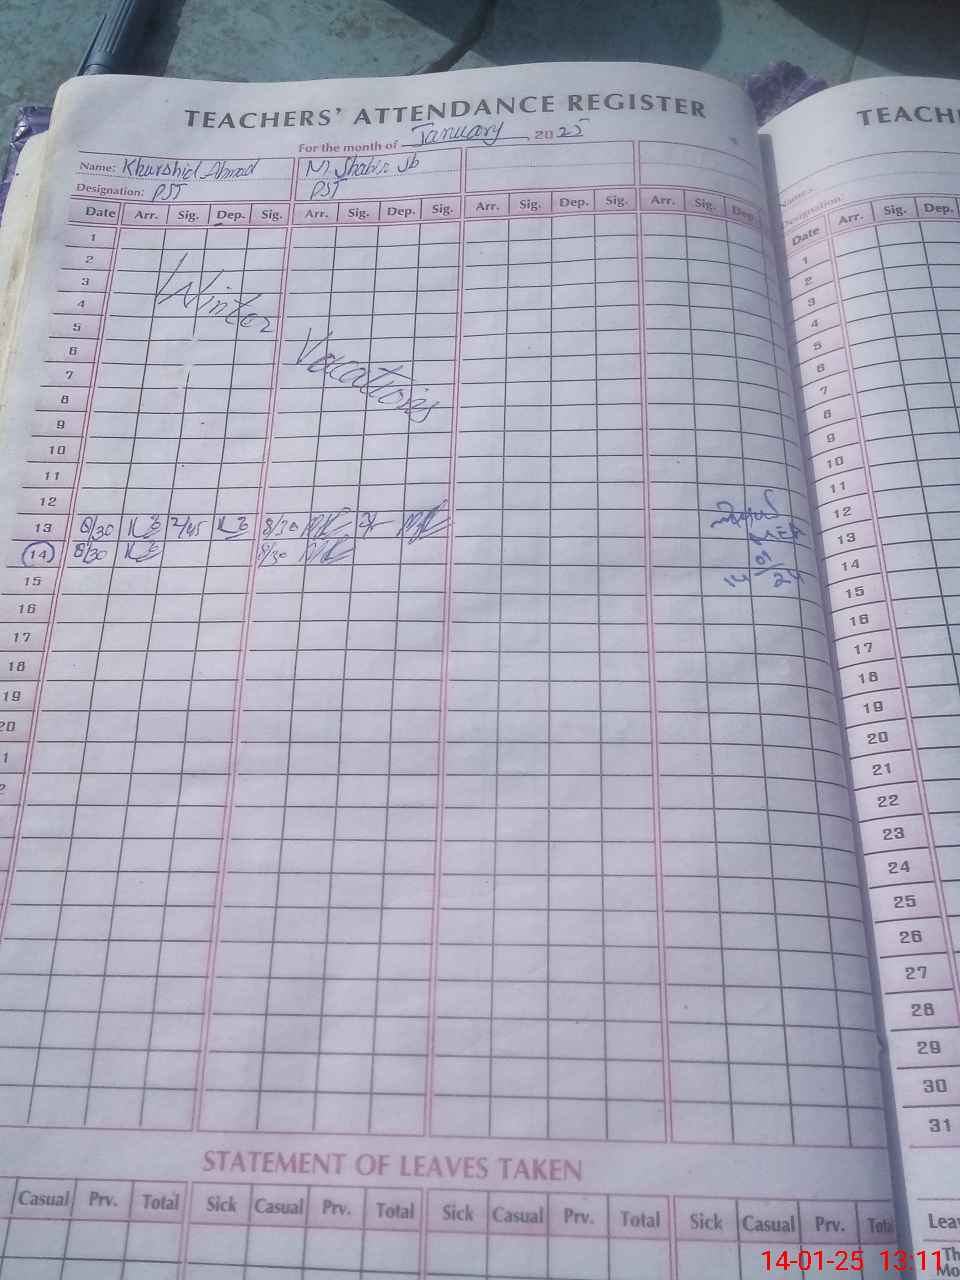 TEACHERS' ATTENDANCE REGISTER
For the month of January 2025
Name: Khurshid Ahmad M. Shabir Sb
Designation: PST PST
Date Arr. Sig. Dep. Sig. Arr. Sig. Dep. Sig. Arr. Sig. Dep. Sig. Arr. Sig. Dep
1
2
3
4
5
6
7
8
9
10
11
12
Winter
Vacations
13 8/30 2/45 8/30
14 8/30 8/30
MEA
14 01 24
15
16
17
18
19
20
1
2
STATEMENT OF LEAVES TAKEN
Casual Prv. Total Sick Casual Prv. Total Sick Casual Prv. Total Sick Casual Prv. Tota
TEACH
Name:
Designation:
Date Arr. Sig. Dep.
1
2
3
4
5
6
7
8
9
10
11
12
13
14
15
16
17
18
19
20
21
22
23
24
25
26
27
28
29
30
31
Lea
Th
Mo
14-01-25 13:11